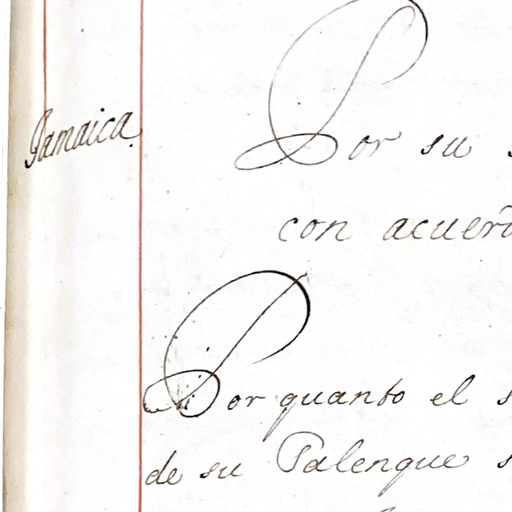 Jamaica.
Por su
con acuer
Por quanto el
de su Palenque